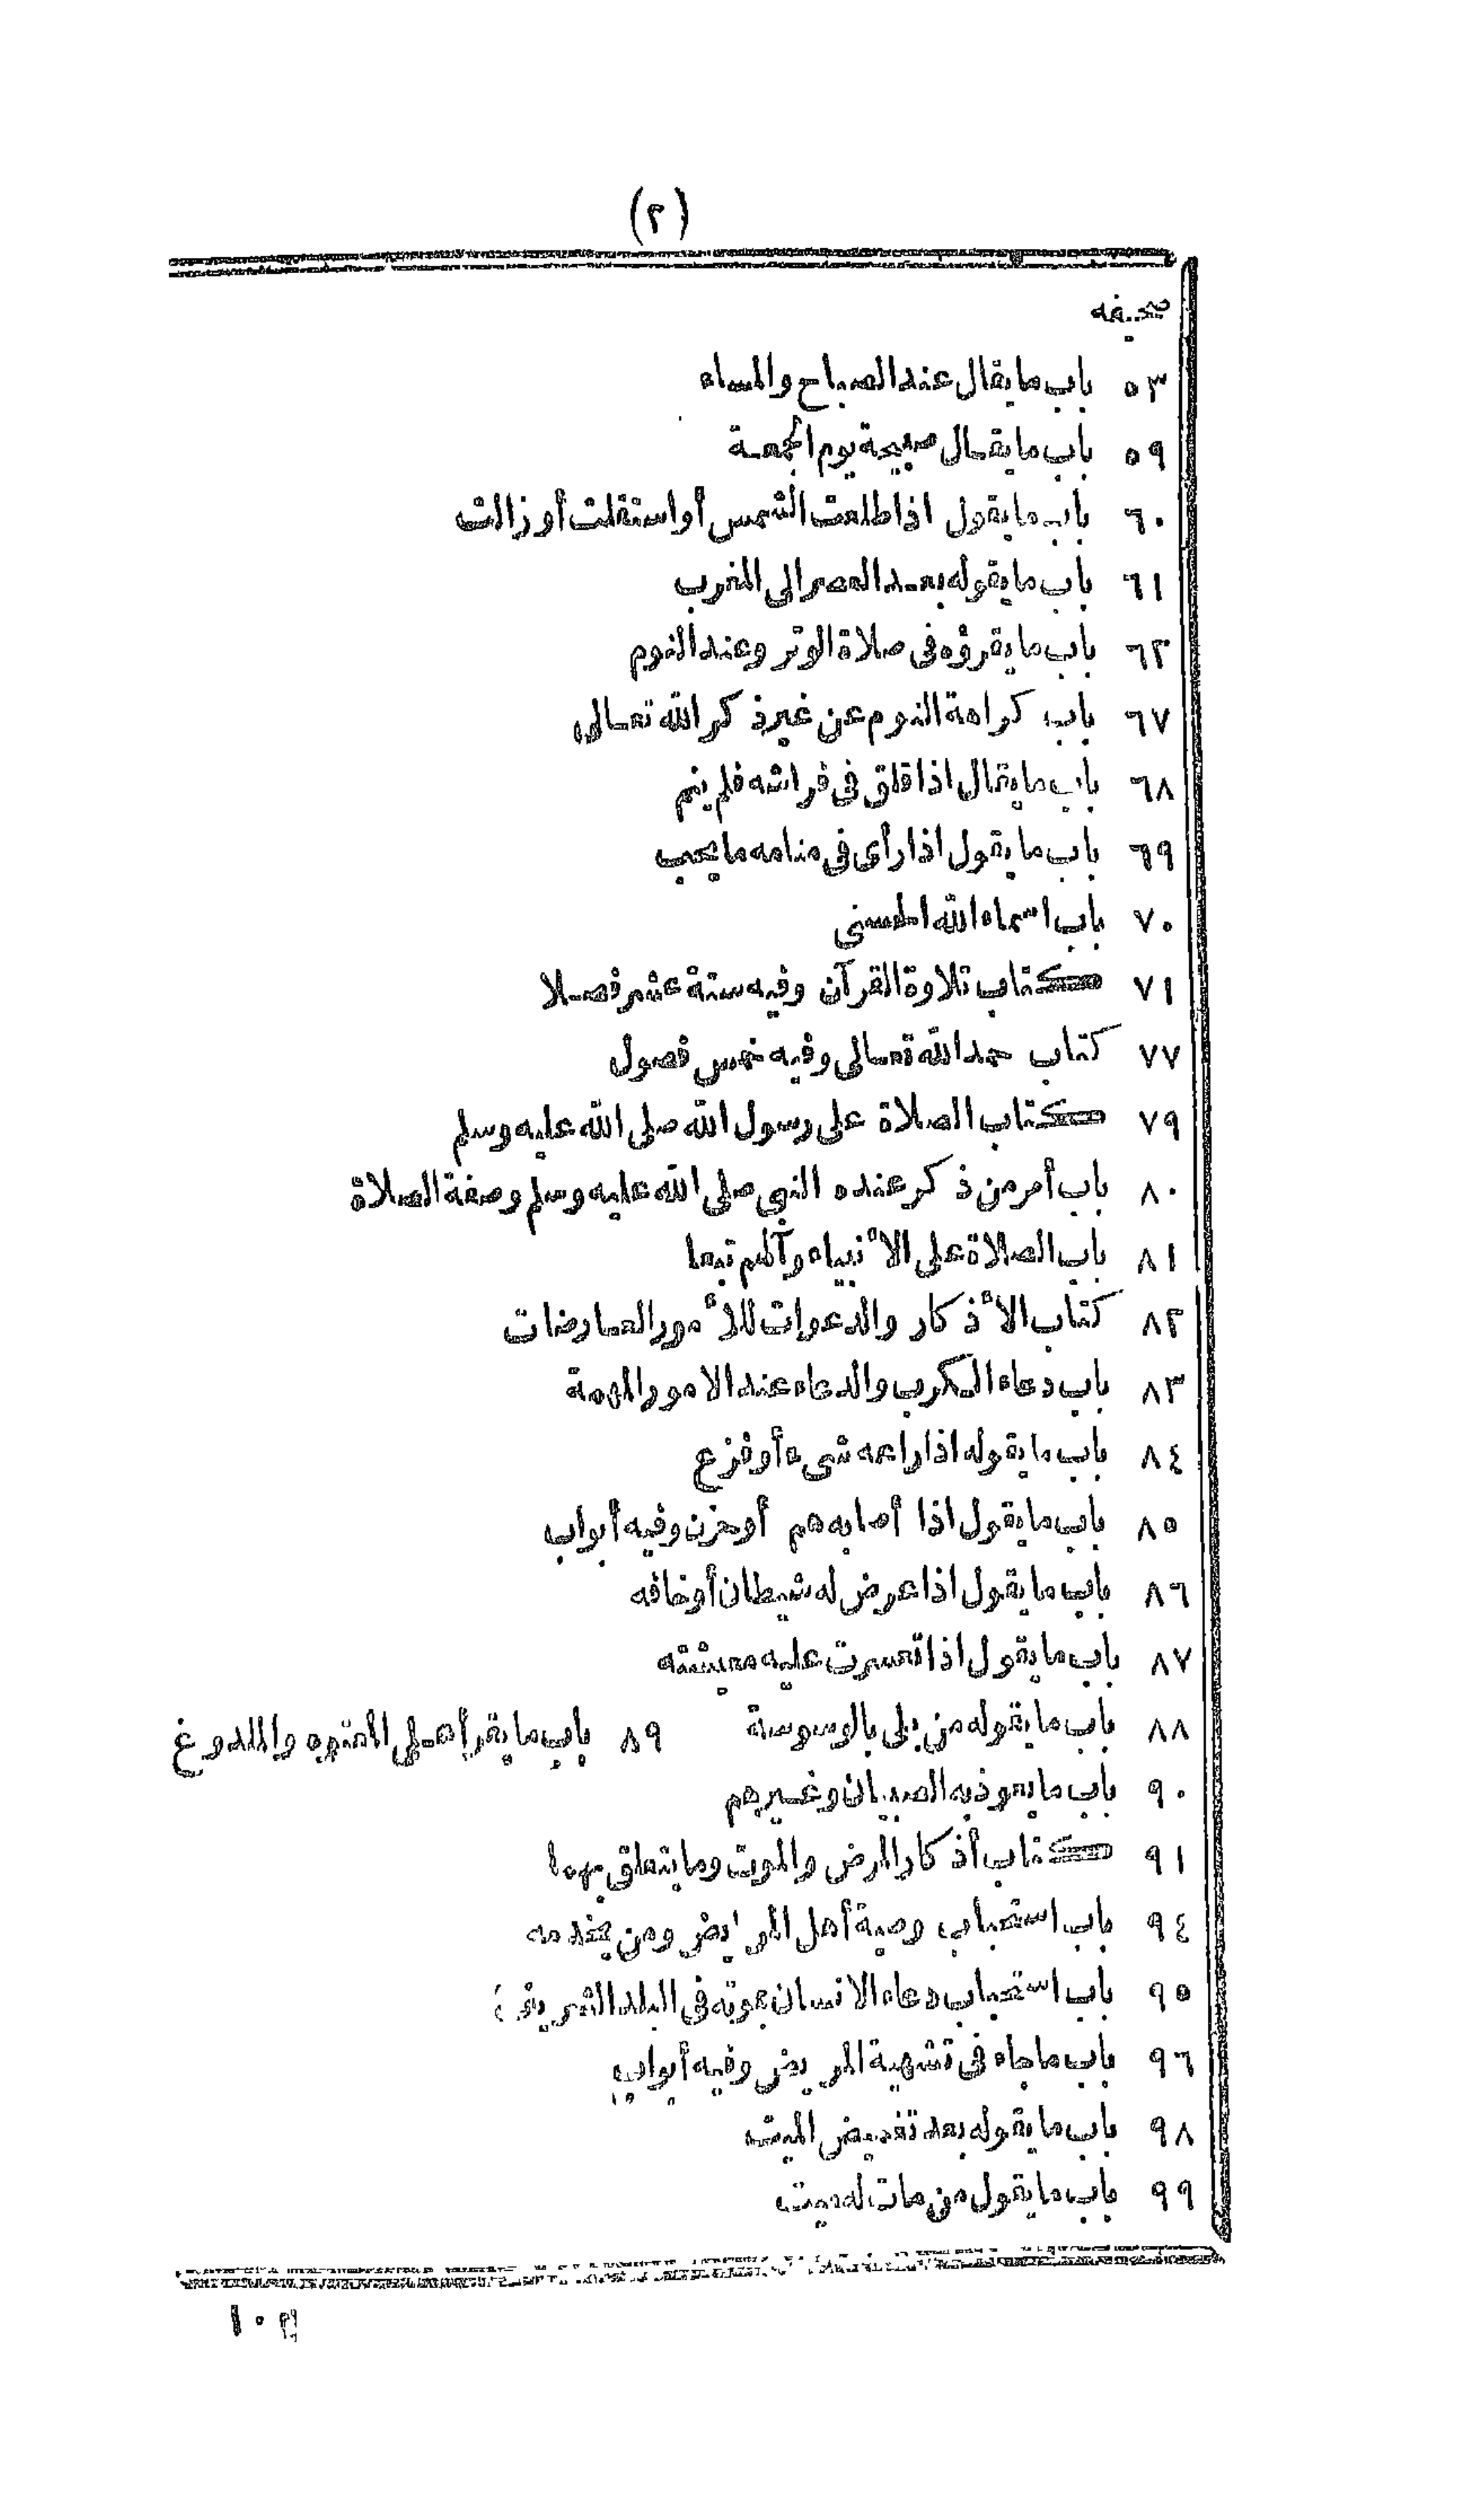 (٢)
صحيفه
٥٣ باب ما يقال عند الصباح والمساء
٥٩ باب ما يقال صبيحة يوم الجمعة
٦٠ باب ما يقول اذا طلعت الشمس أو استقلت أو زالت
٦١ باب ما يقوله بعد العصر الى المغرب
٦٢ باب ما يقرؤه فى صلاة الوتر وعند النوم
٦٧ باب كراهة النوم عن غير ذكر الله تعالى
٦٨ باب ما يقال اذا قلق فى فراشه فلم ينم
٦٩ باب ما يقول اذا رأى فى منامه ما يحب
٧٠ باب اسماء الله الحسنى
٧١ كتاب تلاوة القرآن وفيه ستة عشر فصلا
٧٧ كتاب حمد الله تعالى وفيه خمس فصول
٧٩ كتاب الصلاة على رسول الله صلى الله عليه وسلم
٨٠ باب أمر من ذكر عنده النبى صلى الله عليه وسلم وصفة الصلاة
٨١ باب الصلاة على الأنبياء وآلهم تبعا
٨٢ كتاب الأذكار والدعوات للأمور العارضات
٨٣ باب دعاء الكرب والدعاء عند الامور المهمة
٨٤ باب ما يقوله اذا راعه شىء أو فزع
٨٥ باب ما يقول اذا أصابه هم أو حزن وفيه أبواب
٨٦ باب ما يقول اذا عرض له شيطان أو خافه
٨٧ باب ما يقول اذا تعسرت عليه معيشته
٨٨ باب ما يقوله من بلى بالوسوسة ٨٩ باب ما يقرأ على المعتوه والملدوغ
٩٠ باب ما يعوذ به الصبيان وغيرهم
٩١ كتاب أذكار المرض والموت وما يتعلق بهما
٩٤ باب استحباب وصية أهل المريض ومن يخدمه
٩٥ باب استحباب دعاء الانسان بموته فى البلد الشريف
٩٦ باب ما جاء فى تشهية المريض وفيه أبواب
٩٨ باب ما يقوله بعد تغميض الميت
٩٩ باب ما يقول من مات له ميت